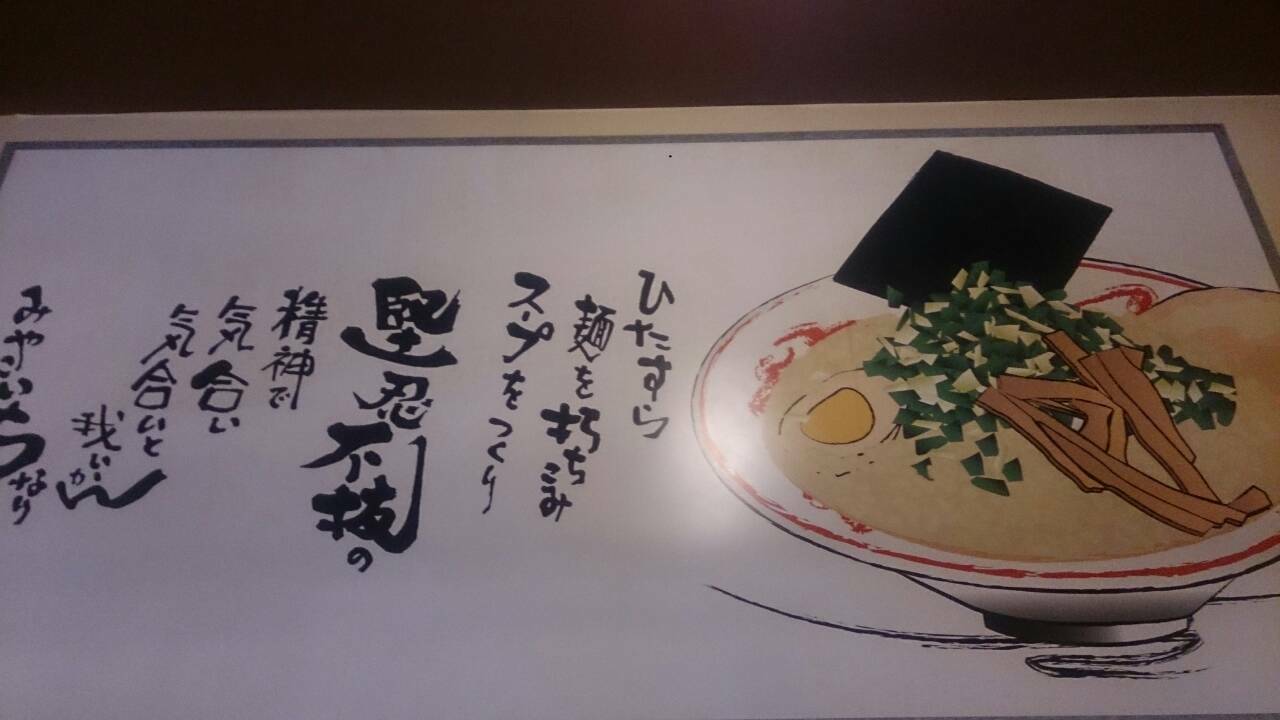 ひたすら
麺を打ちこみ
スープをつくり
堅忍不抜の
精神で
気合い
気合いと
我いかん
なり